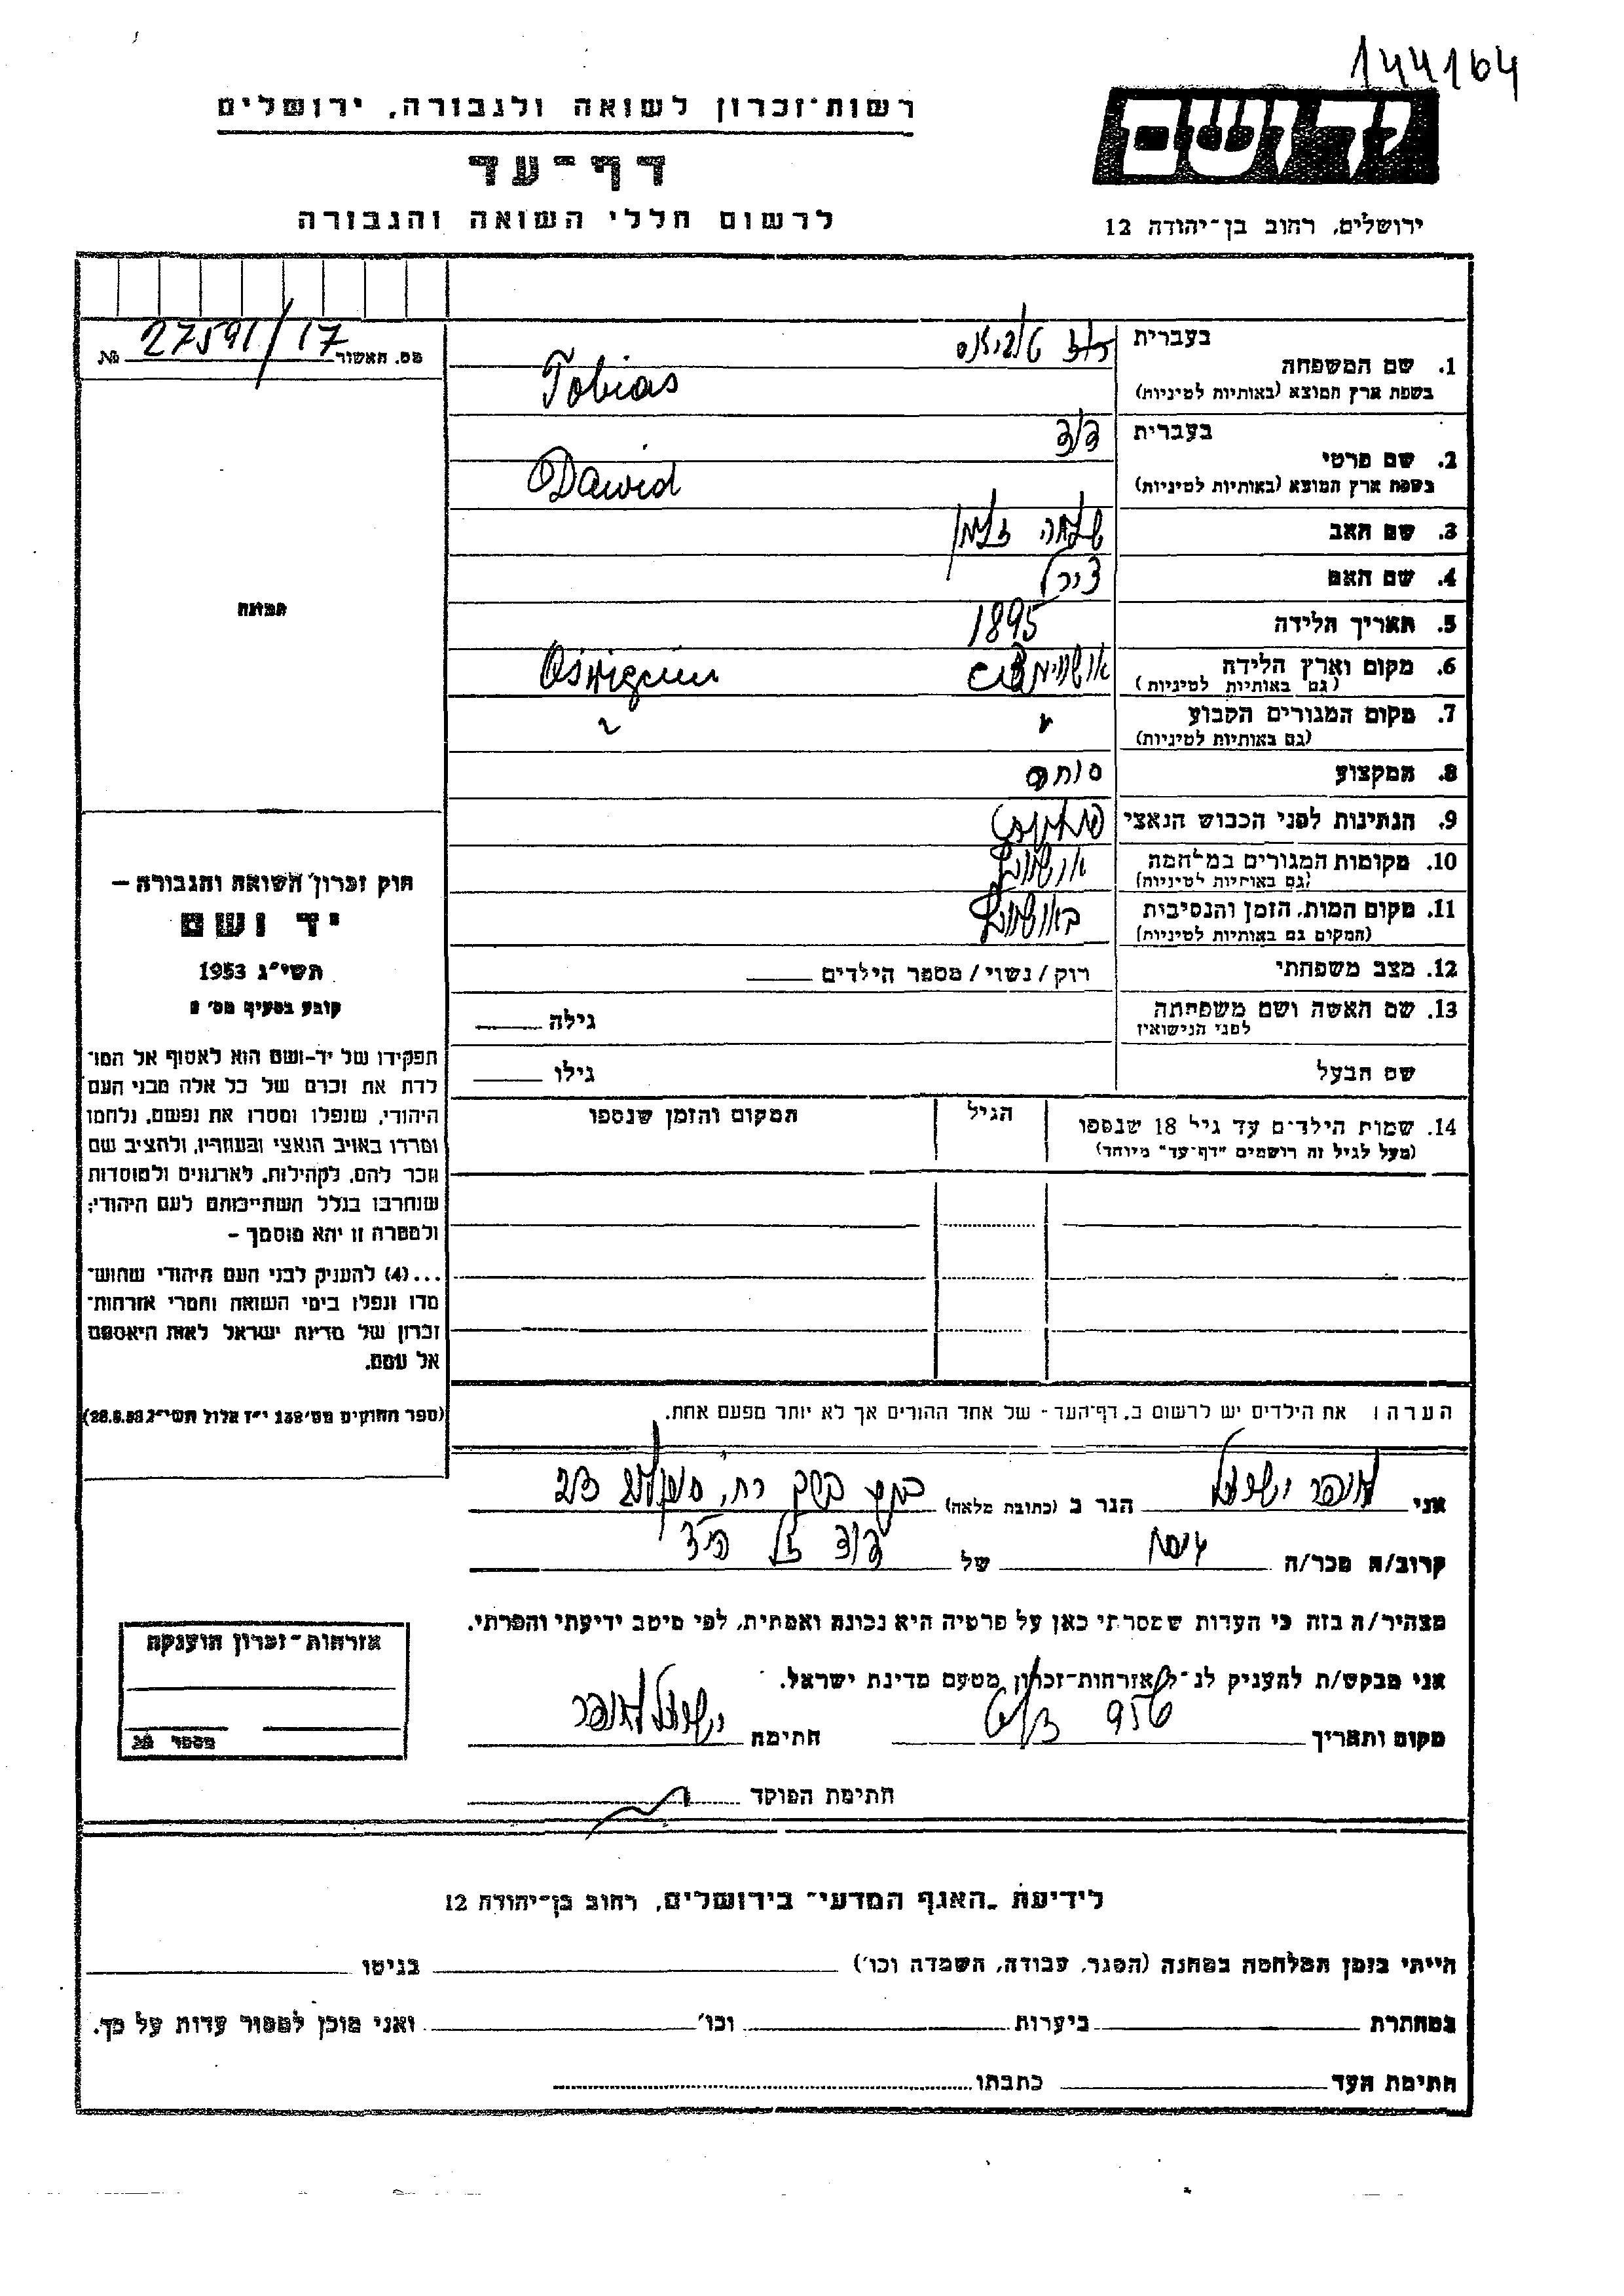 144164
יד ושם
רשות-זכרון לשואה ולגבורה, ירושלים
דף-עד
לרשום חללי השואה והגבורה
ירושלים, רחוב בן-יהודה 12
מס. האשור 27591/17 №
בעברית טוביאס
1. שם המשפחה
בשפת ארץ המוצא (באותיות לטיניות) Tobias
בעברית דוד
2. שם פרטי
בשפת ארץ המוצא (באותיות לטיניות) Dawid
3. שם האב שלמה זלמן
4. שם האם צירל
5. תאריך הלידה 1895
6. מקום וארץ הלידה
(גם באותיות לטיניות) Oświęcim
7. מקום המגורים הקבוע
(גם באותיות לטיניות)
8. המקצוע סוחר
9. הנתינות לפני הכבוש הנאצי
10. מקומות המגורים במלחמה
(גם באותיות לטיניות) אושוויץ
11. מקום המות, הזמן והנסיבות
(המקום גם באותיות לטיניות) באושוויץ
12. מצב משפחתי רוק/נשוי/מספר הילדים
13. שם האשה ושם משפחתה
לפני הנישואין גילה
שם הבעל גילו
14. שמות הילדים עד גיל 18 שנספו הגיל המקום והזמן שנספו
(מעל לגיל זה רושמים "דף-עד" מיוחד)
הערה: את הילדים יש לרשום ב,דף-העד- של אחד ההורים אך לא יותר מפעם אחת.
תמונה
חוק זכרון השואה והגבורה —
יד ושם
תשי"ג 1953
קובע בסעיף מס' 2
תפקידו של יד-ושם הוא לאסוף אל המו-
לדת את זכרם של כל אלה מבני העם
היהודי, שנפלו ומסרו את נפשם, נלחמו
ומרדו באויב הנאצי ובעוזריו, ולהציב שם
וזכר להם, לקהילות, לארגונים ולמוסדות
שנחרבו בגלל השתייכותם לעם היהודי;
ולמטרה זו יהא מוסמך —
...(4) להעניק לבני העם היהודי שהוש-
מדו ונפלו בימי השואה והמרי אזרחות-
זכרון של מדינת ישראל לאות היאספם
אל עמם.
(ספר החוקים מס' 132 י"ז אלול תשי"ג 28.8.53)
אני ישראל הגר ב (כתובת מלאה)
קרוב/ה מכר/ה של דוד
מצהיר/ה בזה כי העדות שמסרתי כאן על פרטיה היא נכונה ואמתית, לפי מיטב ידיעתי והכרתי.
אני מבקש/ת להעניק לנ"ל אזרחות-זכרון מטעם מדינת ישראל.
מקום ותאריך חתימה ישראל
חתימת הפוקד
אזרחות-זכרון הוענקה
מספר תג
לידיעת "האגף המדעי" בירושלים, רחוב בן-יהודה 12
הייתי בזמן המלחמה במחנה (הסגר, עבודה, השמדה וכו') בגיטו
במחתרת ביערות וכו' ואני מוכן למסור עדות על כך.
חתימת העד כתבתו